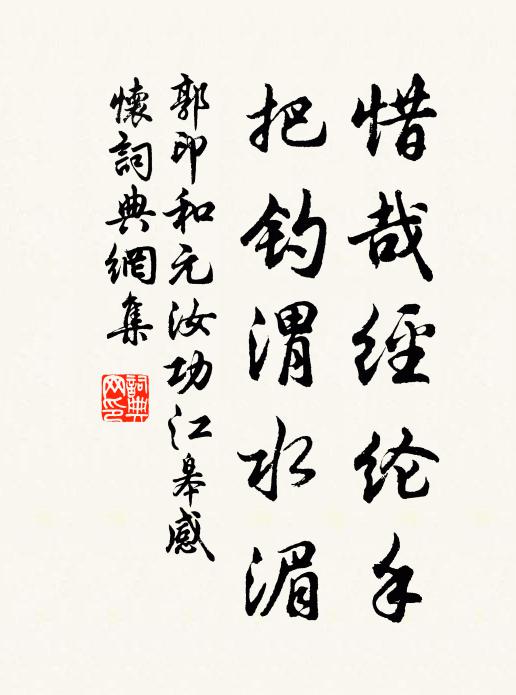 惜哉經纶手
把钓渭水湄
郭印和元汝功江皋感
懷詞典網集
詞典网印